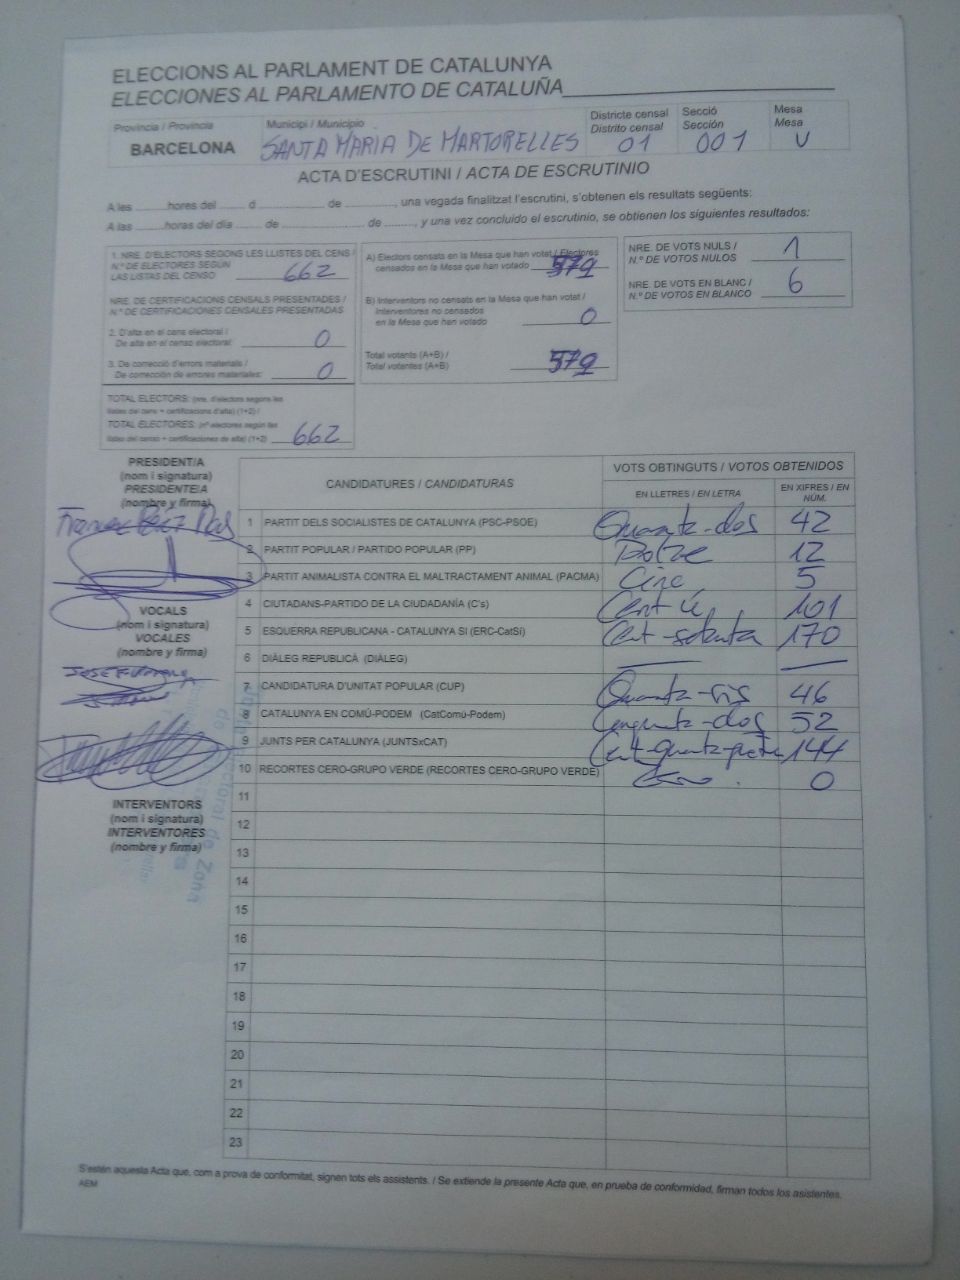 ELECCIONS AL PARLAMENT DE CATALUNYA
ELECCIONES AL PARLAMENTO DE CATALUÑA
Província / Provincia
BARCELONA
Municipi / Municipio
SANTA MARIA DE MARTORELLES
Districte censal
Distrito censal
01
Secció
Sección
001
Mesa
Mesa
U
ACTA D'ESCRUTINI / ACTA DE ESCRUTINIO
A les ........ hores del ...... d ........ de ........, una vegada finalitzat l'escrutini, s'obtenen els resultats següents:
A las ........ horas del día ...... de ........ de ........, y una vez concluido el escrutinio, se obtienen los siguientes resultados:
1. NRE. D'ELECTORS SEGONS LES LLISTES DEL CENS /
N.º DE ELECTORES SEGÚN
LAS LISTAS DEL CENSO 662
NRE. DE CERTIFICACIONS CENSALS PRESENTADES /
N.º DE CERTIFICACIONES CENSALES PRESENTADAS
2. D'alta en el cens electoral /
De alta en el censo electoral: 0
3. De correcció d'errors materials /
De corrección de errores materiales: 0
TOTAL ELECTORS: (nre. d'electors segons les
llistes del cens + certificacions d'alta) (1+2) /
TOTAL ELECTORES: (nº electores según las
listas del censo + certificaciones de alta) (1+2) 662
A) Electors censats en la Mesa que han votat / Electores
censados en la Mesa que han votado 579
B) Interventors no censats en la Mesa que han votat /
Interventores no censados
en la Mesa que han votado 0
Total votants (A+B) /
Total votantes (A+B) 579
NRE. DE VOTS NULS /
N.º DE VOTOS NULOS 1
NRE. DE VOTS EN BLANC /
N.º DE VOTOS EN BLANCO 6
PRESIDENT/A
(nom i signatura)
PRESIDENTE/A
(nombre y firma)
VOCALS
(nom i signatura)
VOCALES
(nombre y firma)
INTERVENTORS
(nom i signatura)
INTERVENTORES
(nombre y firma)
CANDIDATURES / CANDIDATURAS
VOTS OBTINGUTS / VOTOS OBTENIDOS
EN LLETRES / EN LETRA
EN XIFRES / EN NÚM.
1 PARTIT DELS SOCIALISTES DE CATALUNYA (PSC-PSOE) Quaranta-dos 42
2 PARTIT POPULAR / PARTIDO POPULAR (PP) Dotze 12
3 PARTIT ANIMALISTA CONTRA EL MALTRACTAMENT ANIMAL (PACMA) Cinc 5
4 CIUTADANS-PARTIDO DE LA CIUDADANÍA (C's) Cent ú 101
5 ESQUERRA REPUBLICANA - CATALUNYA SI (ERC-CatSí) Cent-setanta 170
6 DIÀLEG REPUBLICÀ (DIÀLEG)
7 CANDIDATURA D'UNITAT POPULAR (CUP) Quaranta-sis 46
8 CATALUNYA EN COMÚ-PODEM (CatComú-Podem) Cinquanta-dos 52
9 JUNTS PER CATALUNYA (JUNTSxCAT) 144
10 RECORTES CERO-GRUPO VERDE (RECORTES CERO-GRUPO VERDE) Zero 0
11
12
13
14
15
16
17
18
19
20
21
22
23
S'estén aquesta Acta que, com a prova de conformitat, signen tots els assistents. / Se extiende la presente Acta que, en prueba de conformidad, firman todos los asistentes.
AEM